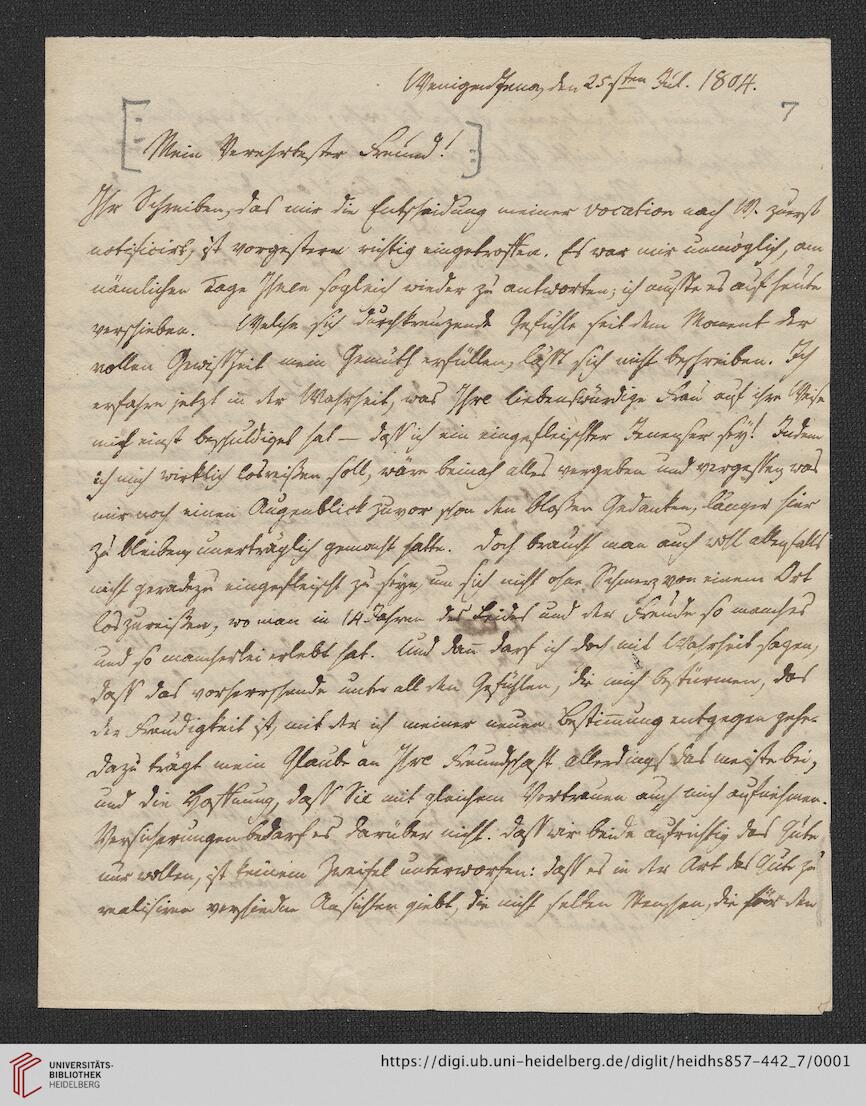 WenigenJena, den 25sten Jul. 1804.
7
Mein Verehrtester Freund!
Ihr Schreiben, das mir die Entscheidung meiner vocation nach W. zuerst
notificirt, ist vorgestern richtig eingetroffen. Es war mir unmöglich, am
nämlichen Tage Ihnen sogleich wieder zu antworten; ich mußte es auf heute
verschieben. Welche sich durchkreuzende Gefühle seit dem Moment der
vollen Gewißheit mein Gemüth erfüllen, läßt sich nicht beschreiben. Ich
erfahre jetzt in der Wahrheit, was Ihre liebenswürdige Frau auf ihre Weise
mich einst beschuldiget hat — daß ich ein eingefleischter Jenenser sey! Indem
ich mich wirklich losreißen soll, wäre beinah alles vergeben und vergessen, was
mir noch einen Augenblick zuvor schon den bloßen Gedanken, länger hier
zu bleiben, unerträglich gemacht hatte. Doch braucht man auch wohl allenfalls
nicht geradezu eingefleischt zu seyn, um sich nicht ohne Schmerz von einem Ort
loszureißen, wo man in 14 Jahren des Leides und der Freude so manches
und so mancherlei erlebt hat. Und dann darf ich doch mit Wahrheit sagen,
daß das vorherrschende unter all den Gefühlen, die mich bestürmen, das
der Freudigkeit ist, mit der ich meiner neuen Bestimmung entgegen gehe.
Dazu trägt mein Glaube an Ihre Freundschaft allerdings das meiste bei,
und die Hoffnung, daß Sie mit gleichem Vertrauen auch mich aufnehmen.
Versicherungen bedarf es darüber nicht. Daß wir beide aufrichtig das Gute
nur wollen, ist keinem Zweifel unterworfen: daß es in der Art das Gute zu
realisiren verschiedne Ansichten giebt, die nicht selten Menschen, die für den
UNIVERSITÄTS-
BIBLIOTHEK
HEIDELBERG
https://digi.ub.uni-heidelberg.de/diglit/heidhs857-442_7/0001